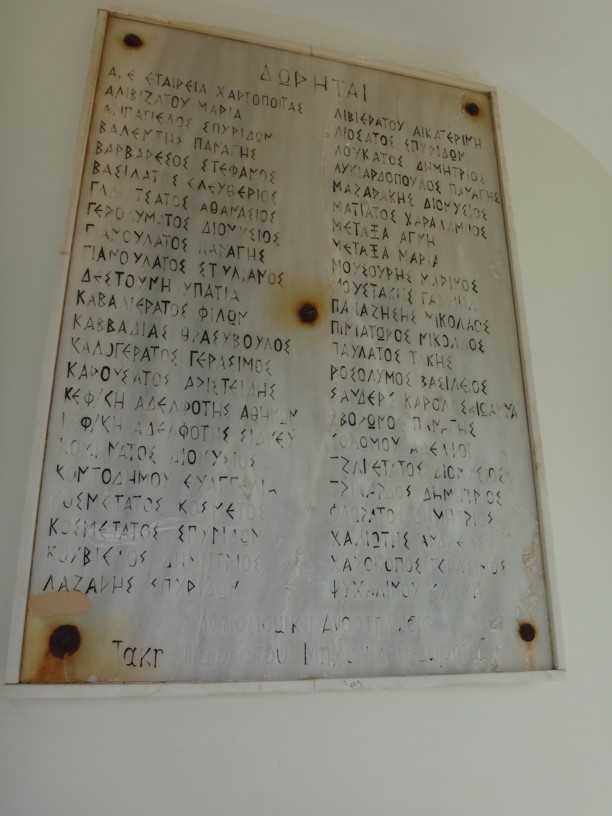 ΔΩΡΗΤΑΙ
Α. Ε ΕΤΑΙΡΕΙΑ ΧΑΡΤΟΠΟΙΪΑΣ
ΑΛΙΒΙΖΑΤΟΥ ΜΑΡΙΑ
ΣΠΥΡΙΔΩΝ
ΒΑΛΕΝΤΗΣ ΠΑΝΑΓΗΣ
ΒΑΡΒΑΡΕΣΟΣ ΣΤΕΦΑΝΟΣ
ΒΑΣΙΛΑΤΟΣ ΕΛΕΥΘΕΡΙΟΣ
ΑΘΑΝΑΣΙΟΣ
ΓΕΡΟΛΥΜΑΤΟΣ ΔΙΟΝΥΣΙΟΣ
ΓΙΑΝΟΥΛΑΤΟΣ ΠΑΝΑΓΗΣ
ΓΙΑΝΟΥΛΑΤΟΣ ΣΤΥΛΙΑΝΟΣ
ΔΕΣΤΟΥΝΗ ΥΠΑΤΙΑ
ΚΑΒΑΛΙΕΡΑΤΟΣ ΦΙΛΩΝ
ΚΑΒΒΑΔΙΑΣ ΘΡΑΣΥΒΟΥΛΟΣ
ΚΑΛΟΓΕΡΑΤΟΣ ΓΕΡΑΣΙΜΟΣ
ΚΑΡΟΥΣΑΤΟΣ ΑΡΙΣΤΕΙΔΗΣ
ΚΕΦ/ΚΗ ΑΔΕΛΦΟΤΗΣ ΑΘΗΝΩΝ
ΚΕΦ/ΚΗ ΑΔΕΛΦΟΤΗΣ
ΔΙΟΝΥΣΙΟΣ
ΚΟΝΤΟΔΗΜΟΥ ΕΥΑΓΓΕΛΙΑ
ΚΟΣΜΕΤΑΤΟΣ ΚΟΣΜΕΤΟΣ
ΚΟΣΜΕΤΑΤΟΣ ΣΠΥΡΙΔΩΝ
ΔΗΜΗΤΡΙΟΣ
ΛΑΖΑΡΗΣ ΣΠΥΡΙΔΩΝ
ΛΙΒΙΕΡΑΤΟΥ ΑΙΚΑΤΕΡΙΝΗ
ΛΙΟΣΑΤΟΣ ΣΠΥΡΙΔΩΝ
ΛΟΥΚΑΤΟΣ ΔΗΜΗΤΡΙΟΣ
ΛΥΚΙΑΡΔΟΠΟΥΛΟΣ ΠΑΝΑΓΗΣ
ΜΑΖΑΡΑΚΗΣ ΔΙΟΝΥΣΙΟΣ
ΜΑΤΙΑΤΟΣ ΧΑΡΑΛΑΜΠΟΣ
ΜΕΤΑΞΑ ΑΓΝΗ
ΜΕΤΑΞΑ ΜΑΡΙΑ
ΜΟΥΣΟΥΡΗΣ ΜΑΡΙΝΟΣ
ΜΟΥΣΤΑΚΗΣ
ΠΑΠΑΖΗΣΗΣ ΝΙΚΟΛΑΟΣ
ΠΙΝΙΑΤΩΡΟΣ ΝΙΚΟΛΑΟΣ
ΠΑΥΛΑΤΟΣ ΤΑΚΗΣ
ΡΟΣΟΛΥΜΟΣ ΒΑΣΙΛΕΙΟΣ
ΚΑΡΟΛΟΣ
ΠΑΝΑΓΗΣ
ΣΟΛΩΜΟΥ
ΔΙΟΝΥΣΙΟΣ
ΔΗΜΗΤΡΙΟΣ
ΦΛΩΡΑΤΟΣ ΔΗΜΗΤΡΙΟΣ
ΧΑΛΙΩΤΗΣ ΑΝΔΡΕΑΣ
ΓΕΡΑΣΙΜΟΣ
Τακη